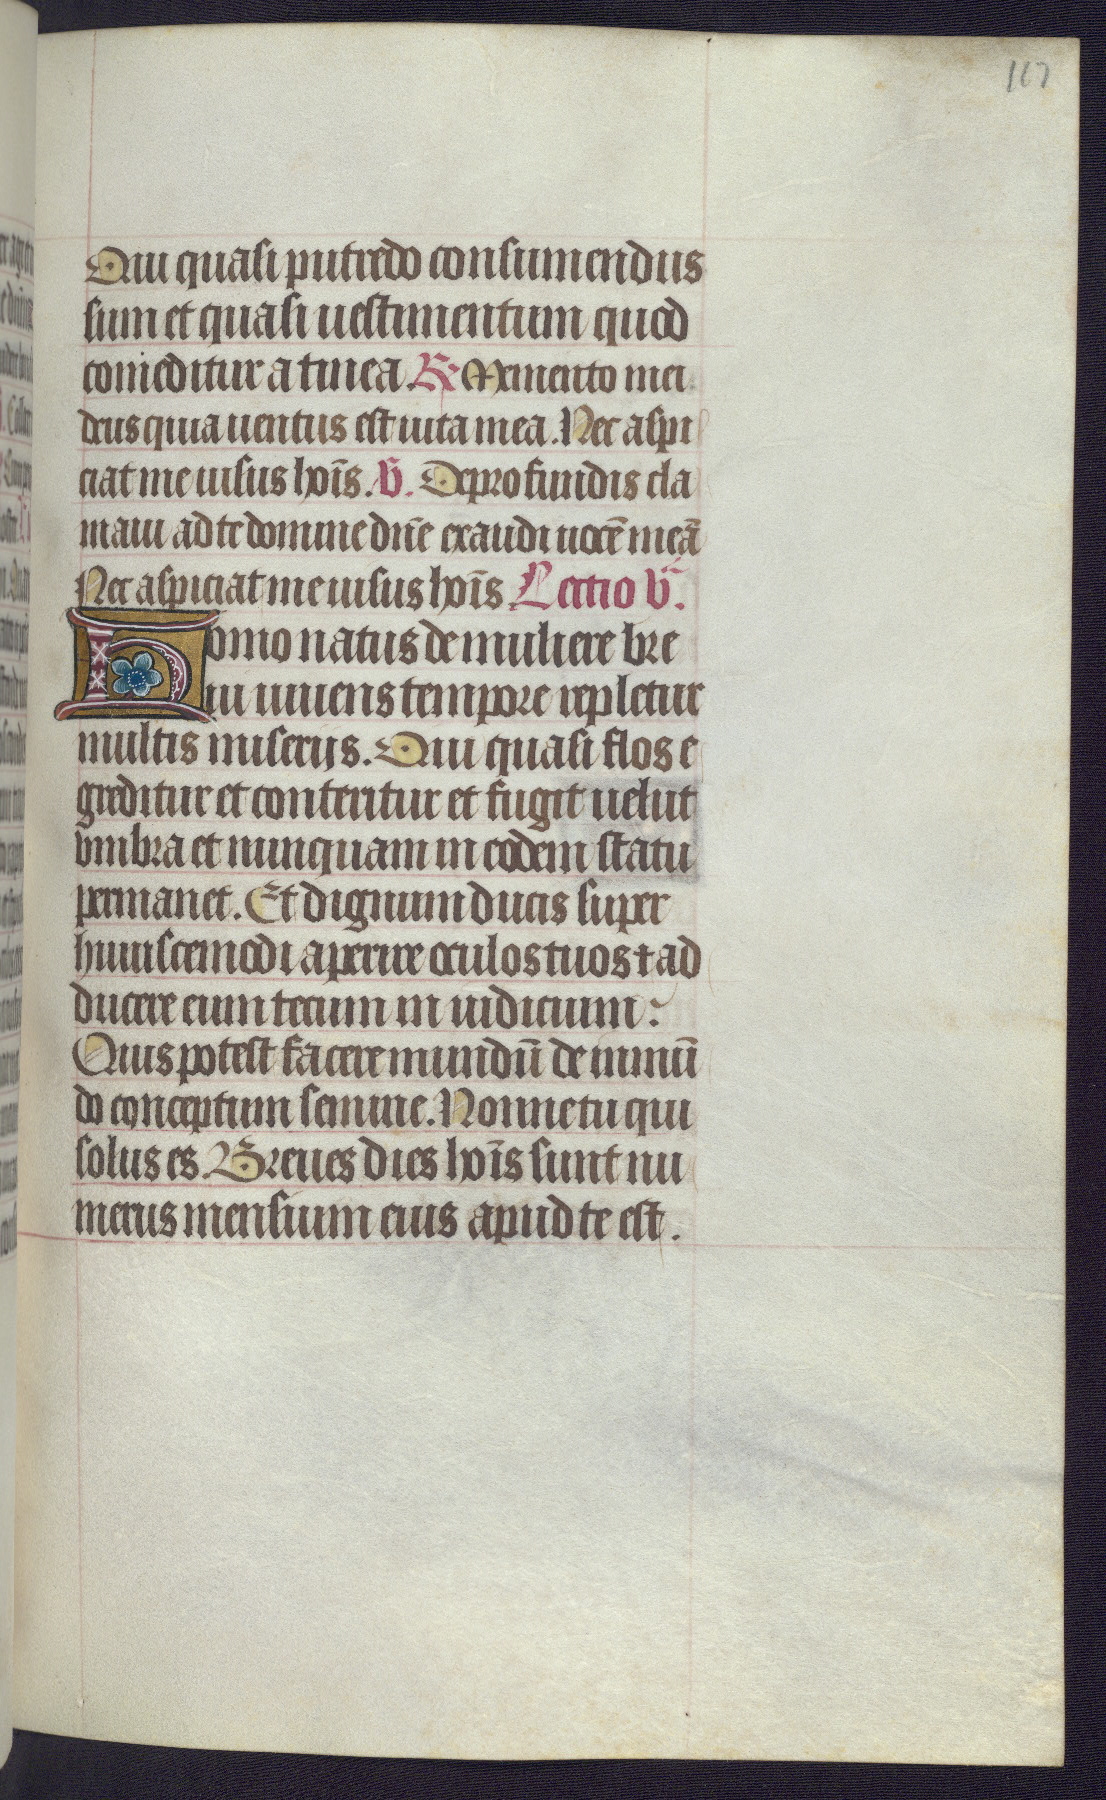 117
Qui quasi putredo consumendus
sum et quasi uestimentum quod
comeditur a tinea. R. Memento mei
deus quia uentus est uita mea. Nec aspi
ciat me uisus hoīs. V. De profundis cla
maui ad te domine dn̄e exaudi uocē meā
Nec aspiciat me uisus hoīs Lectio v.
Homo natus de muliere bre
ui uiuens tempore repletur
multis miserijs. Qui quasi flos e
greditur et conteritur et fugit uelut
vmbra et nunquam in eodem statu
permanet. Et dignum ducis super
huiuscemodi aperire oculos tuos ⁊ ad
ducere eum tecum in iudicium:
Quis potest facere mundū de inmū
do conceptum semine. Nonne tu qui
solus es. Breues dies hoīs sunt nu
merus mensium eius apud te est.